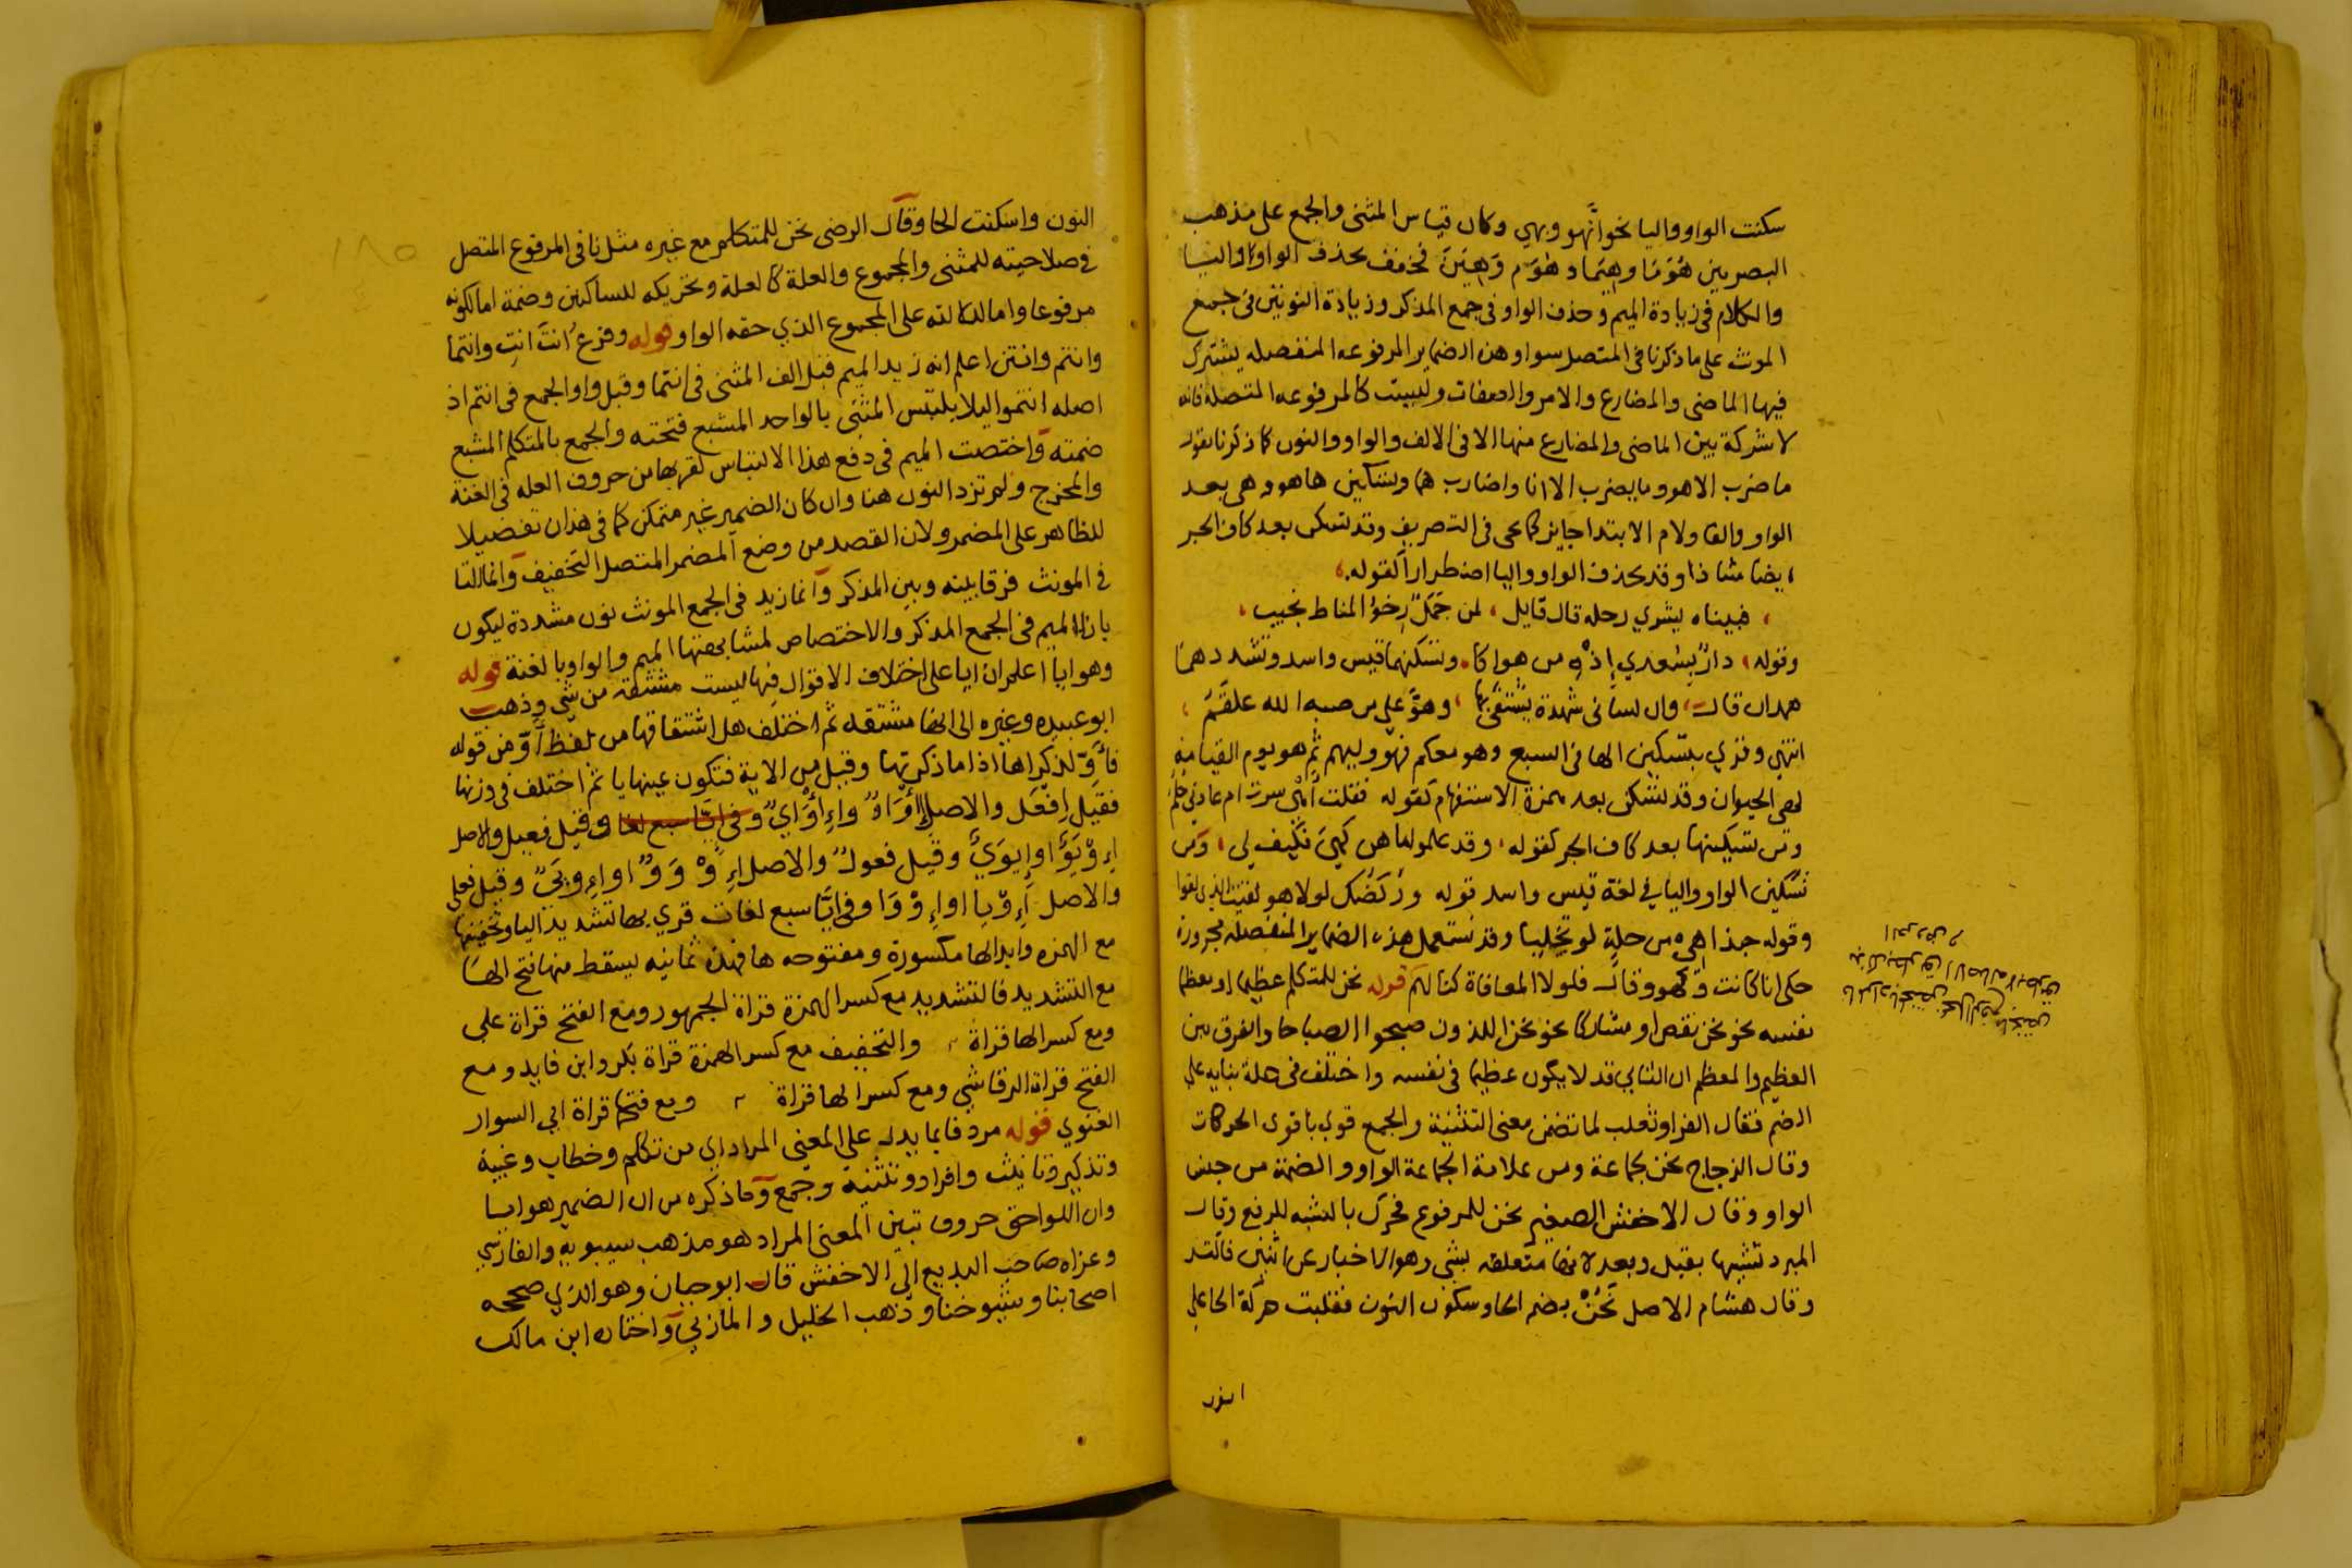 سكنت الواو واليا نحو انهو وبهي وكان قياس المثنى والجمع على مذهب
البصريين هُوَمَا وهِيَمَا وهُوَم وَهِيَنّ فخفف بحذف الواو واليا
والكلام في زيادة الميم وحذف الواو في جمع المذكر وزيادة النونين في جمع
المونث على ما ذكرنا في المتصل سوا وهذه الضماير المرفوعه المنفصله يشترك
فيها الماضي والمضارع والامر والصفات وليست كالمرفوعه المتصله فانه
لا شركة بين الماضي والمضارع منها الا في الالف والواو والنون كما ذكرنا تقول
ما ضرب الا هو وما يضرب الا انا واضارب هما وتسكين ها هو وهي بعد
الواو والفا ولام الابتدا جايز كما يجي في التصريف وقد تسكن بعد كاف الجر
ايضا شاذا وقد تحذف الواو واليا اضطرارا كقوله
فبيناه يشري رحله قال قايل لمن جمل رخو الملاط نجيب
وقوله دار لسعدي اذه من هواكا وتسكنهما قيس واسد وتشددهما
همدان قال وان لساني شهدة يشتفى بها وهوّ على من صبه الله علقم
انتهي وقري بتسكين الها في السبع وهو معكم فهو وليهم ثم هو يوم القيامة
لهي الحيوان وقد تسكن بعد همزة الاستفهام كقوله فقلت أهْي سرت ام عادني حلم
ومن تسكينها بعد كاف الجر كقوله وقد علموا ما هن كهي فكيف لي ومن
تسكين الواو واليا في لغة قيس واسد قوله وركضك لولا هو لقيت الذي لقوا
وقوله حبذا هي من خلة لو تحابي وقد تستعمل هذه الضماير المنفصله مجرورة
حكى انا كانت وكهو وقال فلولا المعافاة كنا كهم قوله نحن للمتكلم عظيما او معظما
نفسه نحو نحن نقص او مشاركا نحو نحن اللذون صبحوا الصباحا والفرق بين
العظيم والمعظم ان الثاني قد لا يكون عظيما في نفسه واختلف في علة بنايه على
الضم فقال الفرا وثعلب لما تضمن معنى التثنية والجمع قوي باقوى الحركات
وقال الزجاج نحن لجماعة ومن علامة الجماعة الواو والضمة من جنس
الواو وقال الاخفش الصغير نحن للمرفوع فحرك بالشبه للرفع وقال
المبرد تشبيها بقبل وبعد لانها متعلقه بشي وهو الاخبار عن اثنين فاكثر
وقال هشام الاصل نَحُنْ بضم الحا وسكون النون فقلبت حركة الحا على
النون
النون واسكنت الحا وقال الرضي نحن للمتكلم مع غيره مثل نا في المرفوع المتصل
في صلاحيته للمثنى والمجموع والعلة كالعلة وتحريكه للساكنين وضمه اما لكونه
مرفوعا واما لدلالته على المجموع الذي حقه الواو قوله وفرع انتَ انتِ وانتما
وانتم وانتن اعلم انه زيد الميم قبل الف المثنى في انتما وقبل واو الجمع في انتم اذ
اصله انتموا ليلا يلتبس المثنى بالواحد المشبع فتحته والجمع بالمتكلم المشبع
ضمته واختصت الميم في دفع هذا الالتباس لقربها من حروف العله في الغنة
والمخرج ولم تزد النون هنا وان كان الضمير غير متمكن كما في هذان تفضيلا
للظاهر على المضمر ولان القصد من وضع المضمر المتصل التخفيف وانما التا
في المونث فرقا بينه وبين المذكر وانما زيد في الجمع المونث نون مشددة ليكون
بازا الميم في الجمع المذكر والاختصاص لمشابهتها الميم والواو بالغنة قوله
وهو ايا اعلم ان ايا على اختلاف الاقوال فيها ليست مشتقة من شي وذهب
ابو عبيده وغيره الى انها مشتقه ثم اختلف هل اشتقاقها من لفظ أَوّ من قوله
فَأَوِّ لذكراها اذا ما ذكرتها وقيل من الاية فتكون عينها يا ثم اختلف في وزنها
فقيل افعل والاصل وقيل فعيل والاصل
اوإيوَيٌ وقيل فعول والاصل وقيل فعلى
والاصل وفي ايا سبع لغات قري بها تشديد اليا وتخفيفها
مع الهمزه وابدالها مكسورة ومفتوحه ها فهذه ثمانيه يسقط منها فتح الها
مع التشديد فالتشديد مع كسر الهمزة قراة الجمهور ومع الفتح قراة علي
ومع كسر الها قراة والتخفيف مع كسر الهمزة قراة بكر وابن فايد ومع
الفتح قراة الرقاشي ومع كسر الها قراة ومع فتحها قراة ابي السوار
الغنوي قوله مردفا بما يدل على المعنى المراد اي من تكلم وخطاب وغيبة
وتذكير وتانيث وافراد وتثنية وجمع وما ذكره من ان الضمير هو ايا
وان اللواحق حروف تبين المعنى المراد هو مذهب سيبويه والفارسي
وعزاه صاحب البديع الى الاخفش قال ابو حيان وهو الذي صححه
اصحابنا وشيوخنا وذهب الخليل والمازني واختاره ابن مالك
١٨٥